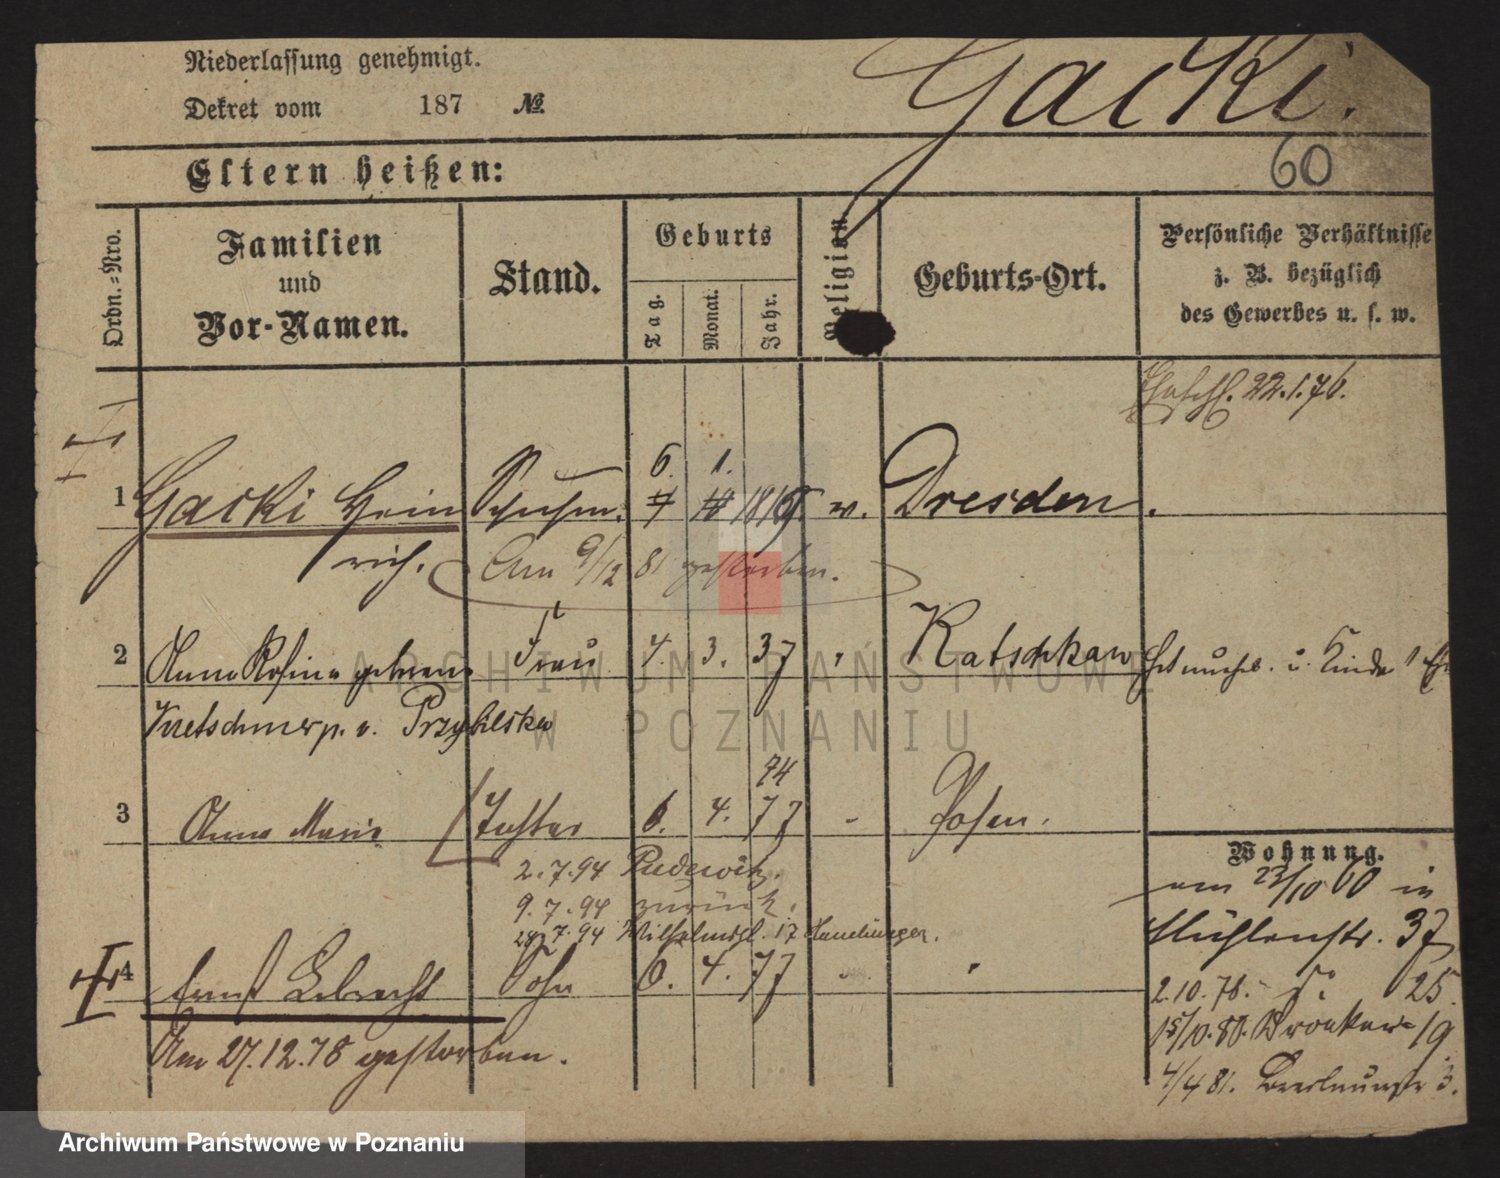 Niederlassung genehmigt.
Dekret vom 187 №
Gacki.
60
Eltern heißen:
Ordn.-Nro.
Familien und Vor-Namen.
Stand.
Geburts
Tag.
Monat.
Jahr.
Religion
Geburts-Ort.
Persönliche Verhältnisse
z. B. bezüglich
des Gewerbes u. s. w.
22.1.76.
1 Gacki Hein Schuhm. 6. 1. w. Dresden.
rich. Am 9/12 81 gestorben.
2 Anna Rosina geborene Frau 4. 3. 37 Katschkaw
Kretschmer p. v. Przybilska
74
3 Anna Marie Tochter 6. 4. 77 Posen.
2.7.94 Pudewitz.
9.7.94 zurück.
Wohnung.
am 23/10 60 in
Mühlenstr. 37
28.7.94 Wilhelmspl. 17
4 Ernst Lebrecht Sohn 6. 4. 77
2.10.78. do 25.
Am 27.12.78 gestorben.
15/10.80. 19
4/4 81. 3.
ARCHIWUM PAŃSTWOWE
W POZNANIU
Archiwum Państwowe w Poznaniu